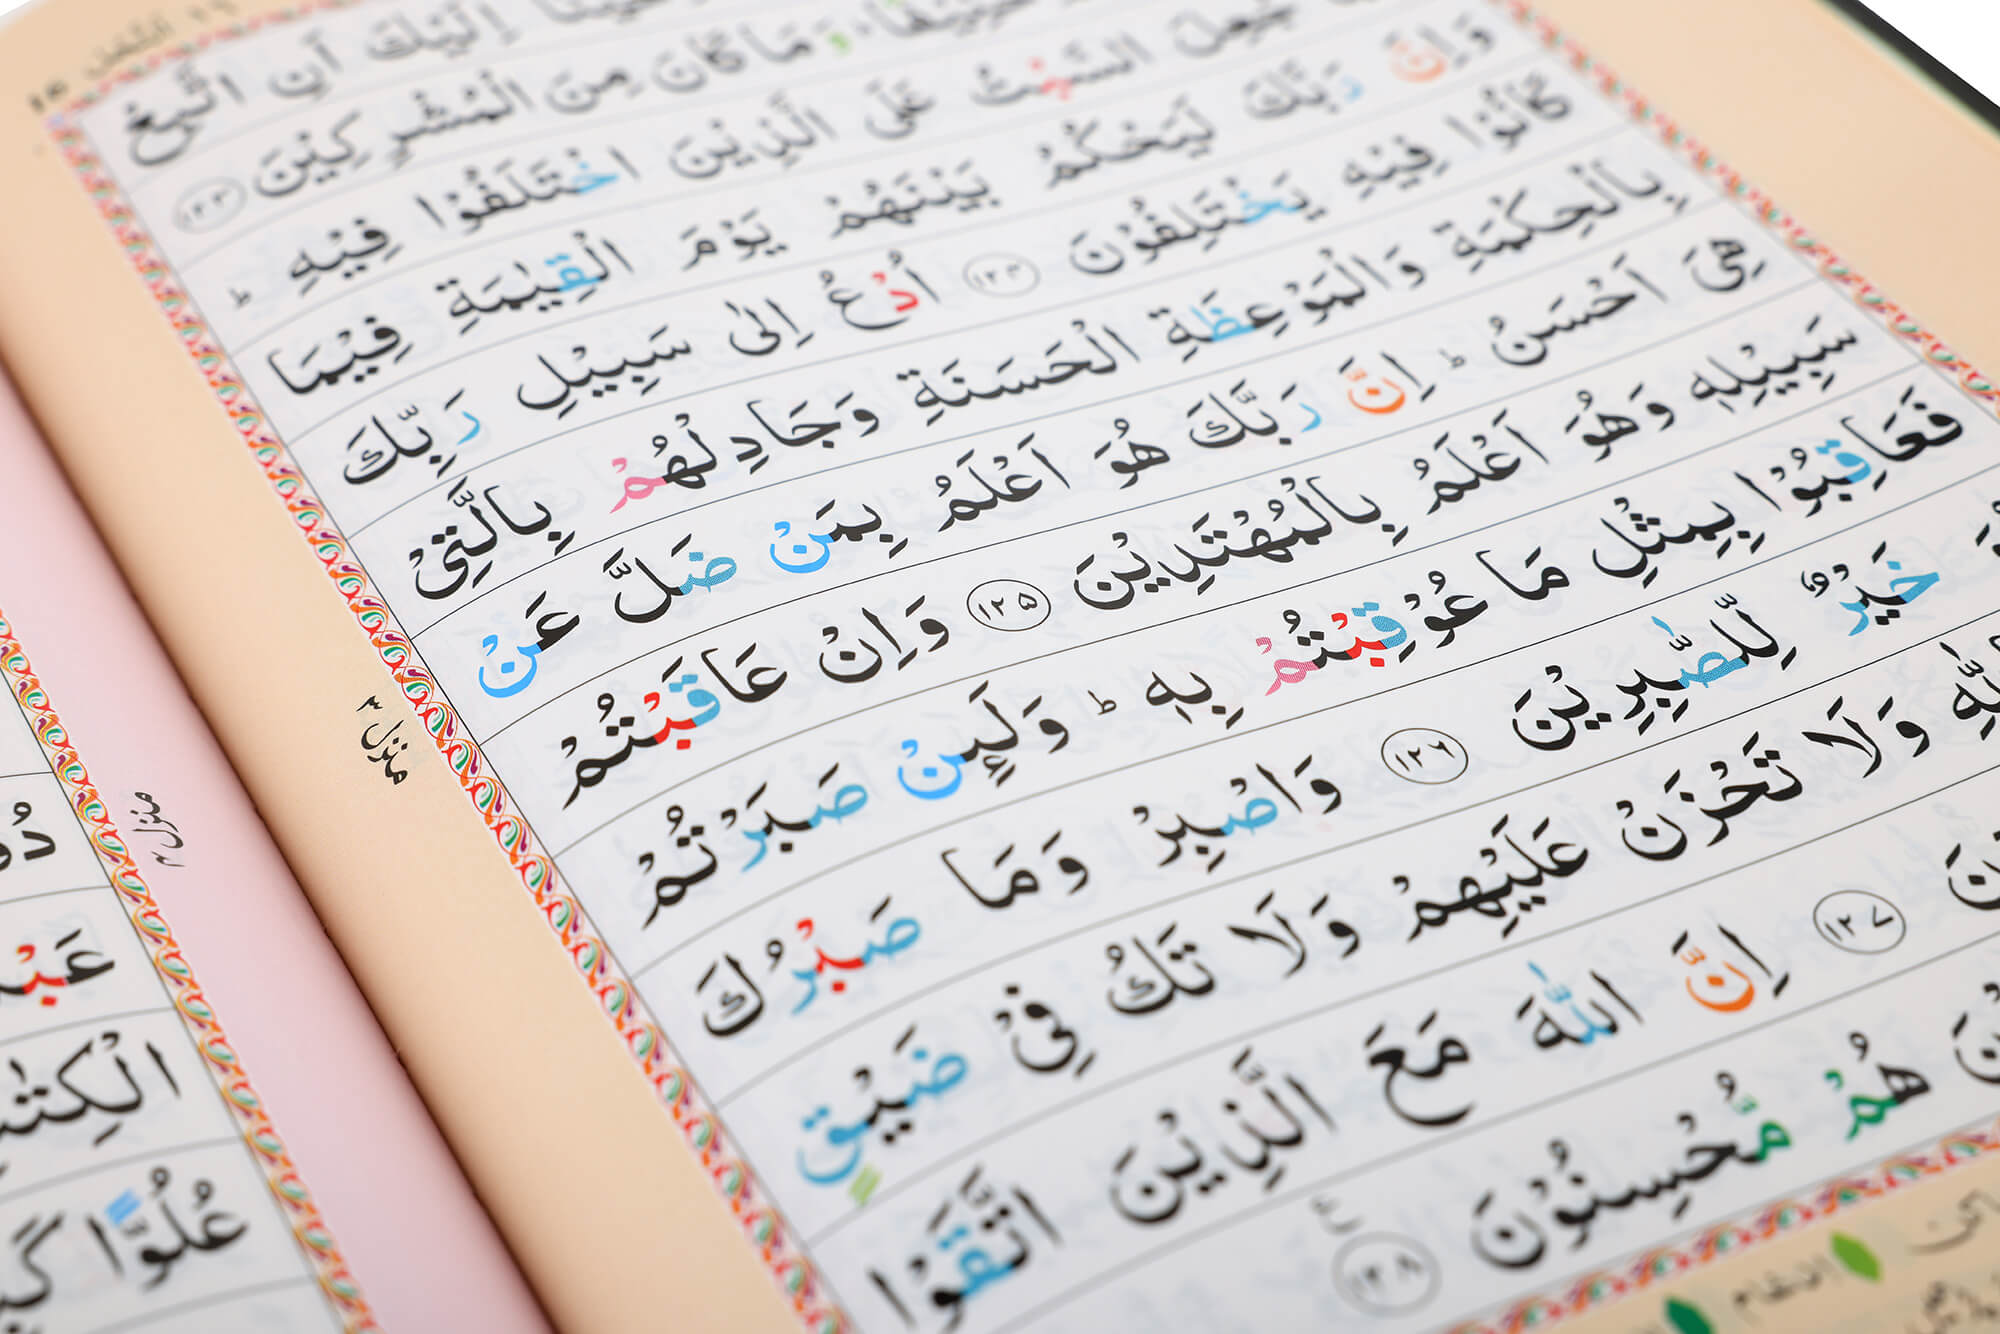 النحل ١٦
اِلَيْكَ اَنِ اتَّبِعْ
مَا كَانَ مِنَ الْمُشْرِكِيْنَ ١٢٣
جُعِلَ السَّبْتُ عَلَى الَّذِيْنَ اخْتَلَفُوْا فِيْهِ ؕ
وَاِنَّ رَبَّكَ لَيَحْكُمُ بَيْنَهُمْ يَوْمَ الْقِيٰمَةِ فِيْمَا
كَانُوْا فِيْهِ يَخْتَلِفُوْنَ ١٢٤ اُدْعُ اِلٰى سَبِيْلِ رَبِّكَ
بِالْحِكْمَةِ وَالْمَوْعِظَةِ الْحَسَنَةِ وَجَادِلْهُمْ بِالَّتِيْ
هِيَ اَحْسَنُ ؕ اِنَّ رَبَّكَ هُوَ اَعْلَمُ بِمَنْ ضَلَّ عَنْ
سَبِيْلِهٖ وَهُوَ اَعْلَمُ بِالْمُهْتَدِيْنَ ١٢٥ وَاِنْ عَاقَبْتُمْ
فَعَاقِبُوْا بِمِثْلِ مَا عُوْقِبْتُمْ بِهٖ ؕ وَلَىِٕنْ صَبَرْتُمْ
خَيْرٌ لِّلصّٰبِرِيْنَ ١٢٦ وَاصْبِرْ وَمَا صَبْرُكَ
وَلَا تَحْزَنْ عَلَيْهِمْ وَلَا تَكُ فِيْ ضَيْقٍ
١٢٧ اِنَّ اللّٰهَ مَعَ الَّذِيْنَ اتَّقَوْا
هُمْ مُّحْسِنُوْنَ ١٢٨
منزل ٣
منزل ٣
عَبْ
الْكِتٰ
عُلُوًّا كَ